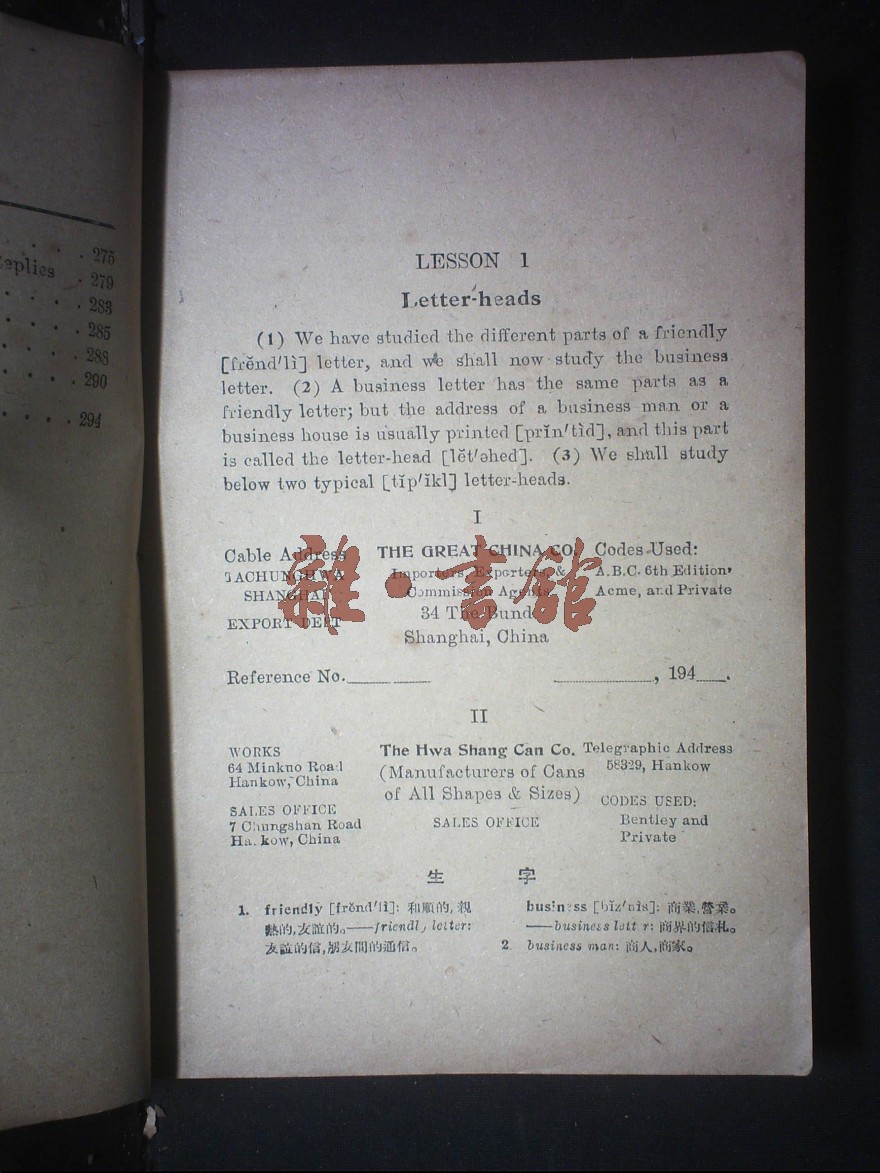 275
279
283
285
288
290
294
LESSON 1
Letter-heads
(1) We have studied the different parts of a friendly
[frĕnd'lĭ] letter, and we shall now study the business
letter. (2) A business letter has the same parts as a
friendly letter; but the address of a business man or a
business house is usually printed [prĭn'tĭd], and this part
is called the letter-head [lĕt'əhed]. (3) We shall study
below two typical [tĭp'ĭkl] letter-heads.
I
Cable Address THE GREAT CHINA CO. Codes Used:
TACHUNGHWA Importers, Exporters, & A.B.C. 6th Edition,
SHANGHAI Commission Agents Acme, and Private
34 The Bund
EXPORT DEPT
Shanghai, China
雜·書館
Reference No. ______ ____ ____________, 194____.
II
WORKS The Hwa Shang Can Co. Telegraphic Address
64 Minkuo Road (Manufacturers of Cans 58329, Hankow
Hankow, China of All Shapes & Sizes)
SALES OFFICE CODES USED:
7 Chungshan Road SALES OFFICE Bentley and
Hankow, China Private
生 字
1. friendly [frĕnd'lĭ]: 和順的,親
熱的,友誼的。——friendly letter:
友誼的信,朋友間的通信。
business [bĭz'nĭs]: 商業,營業。
——business letter: 商界的信札。
2. business man: 商人,商家。